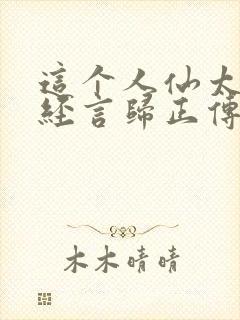 這个人仙太
經言歸正傳
木木晴晴